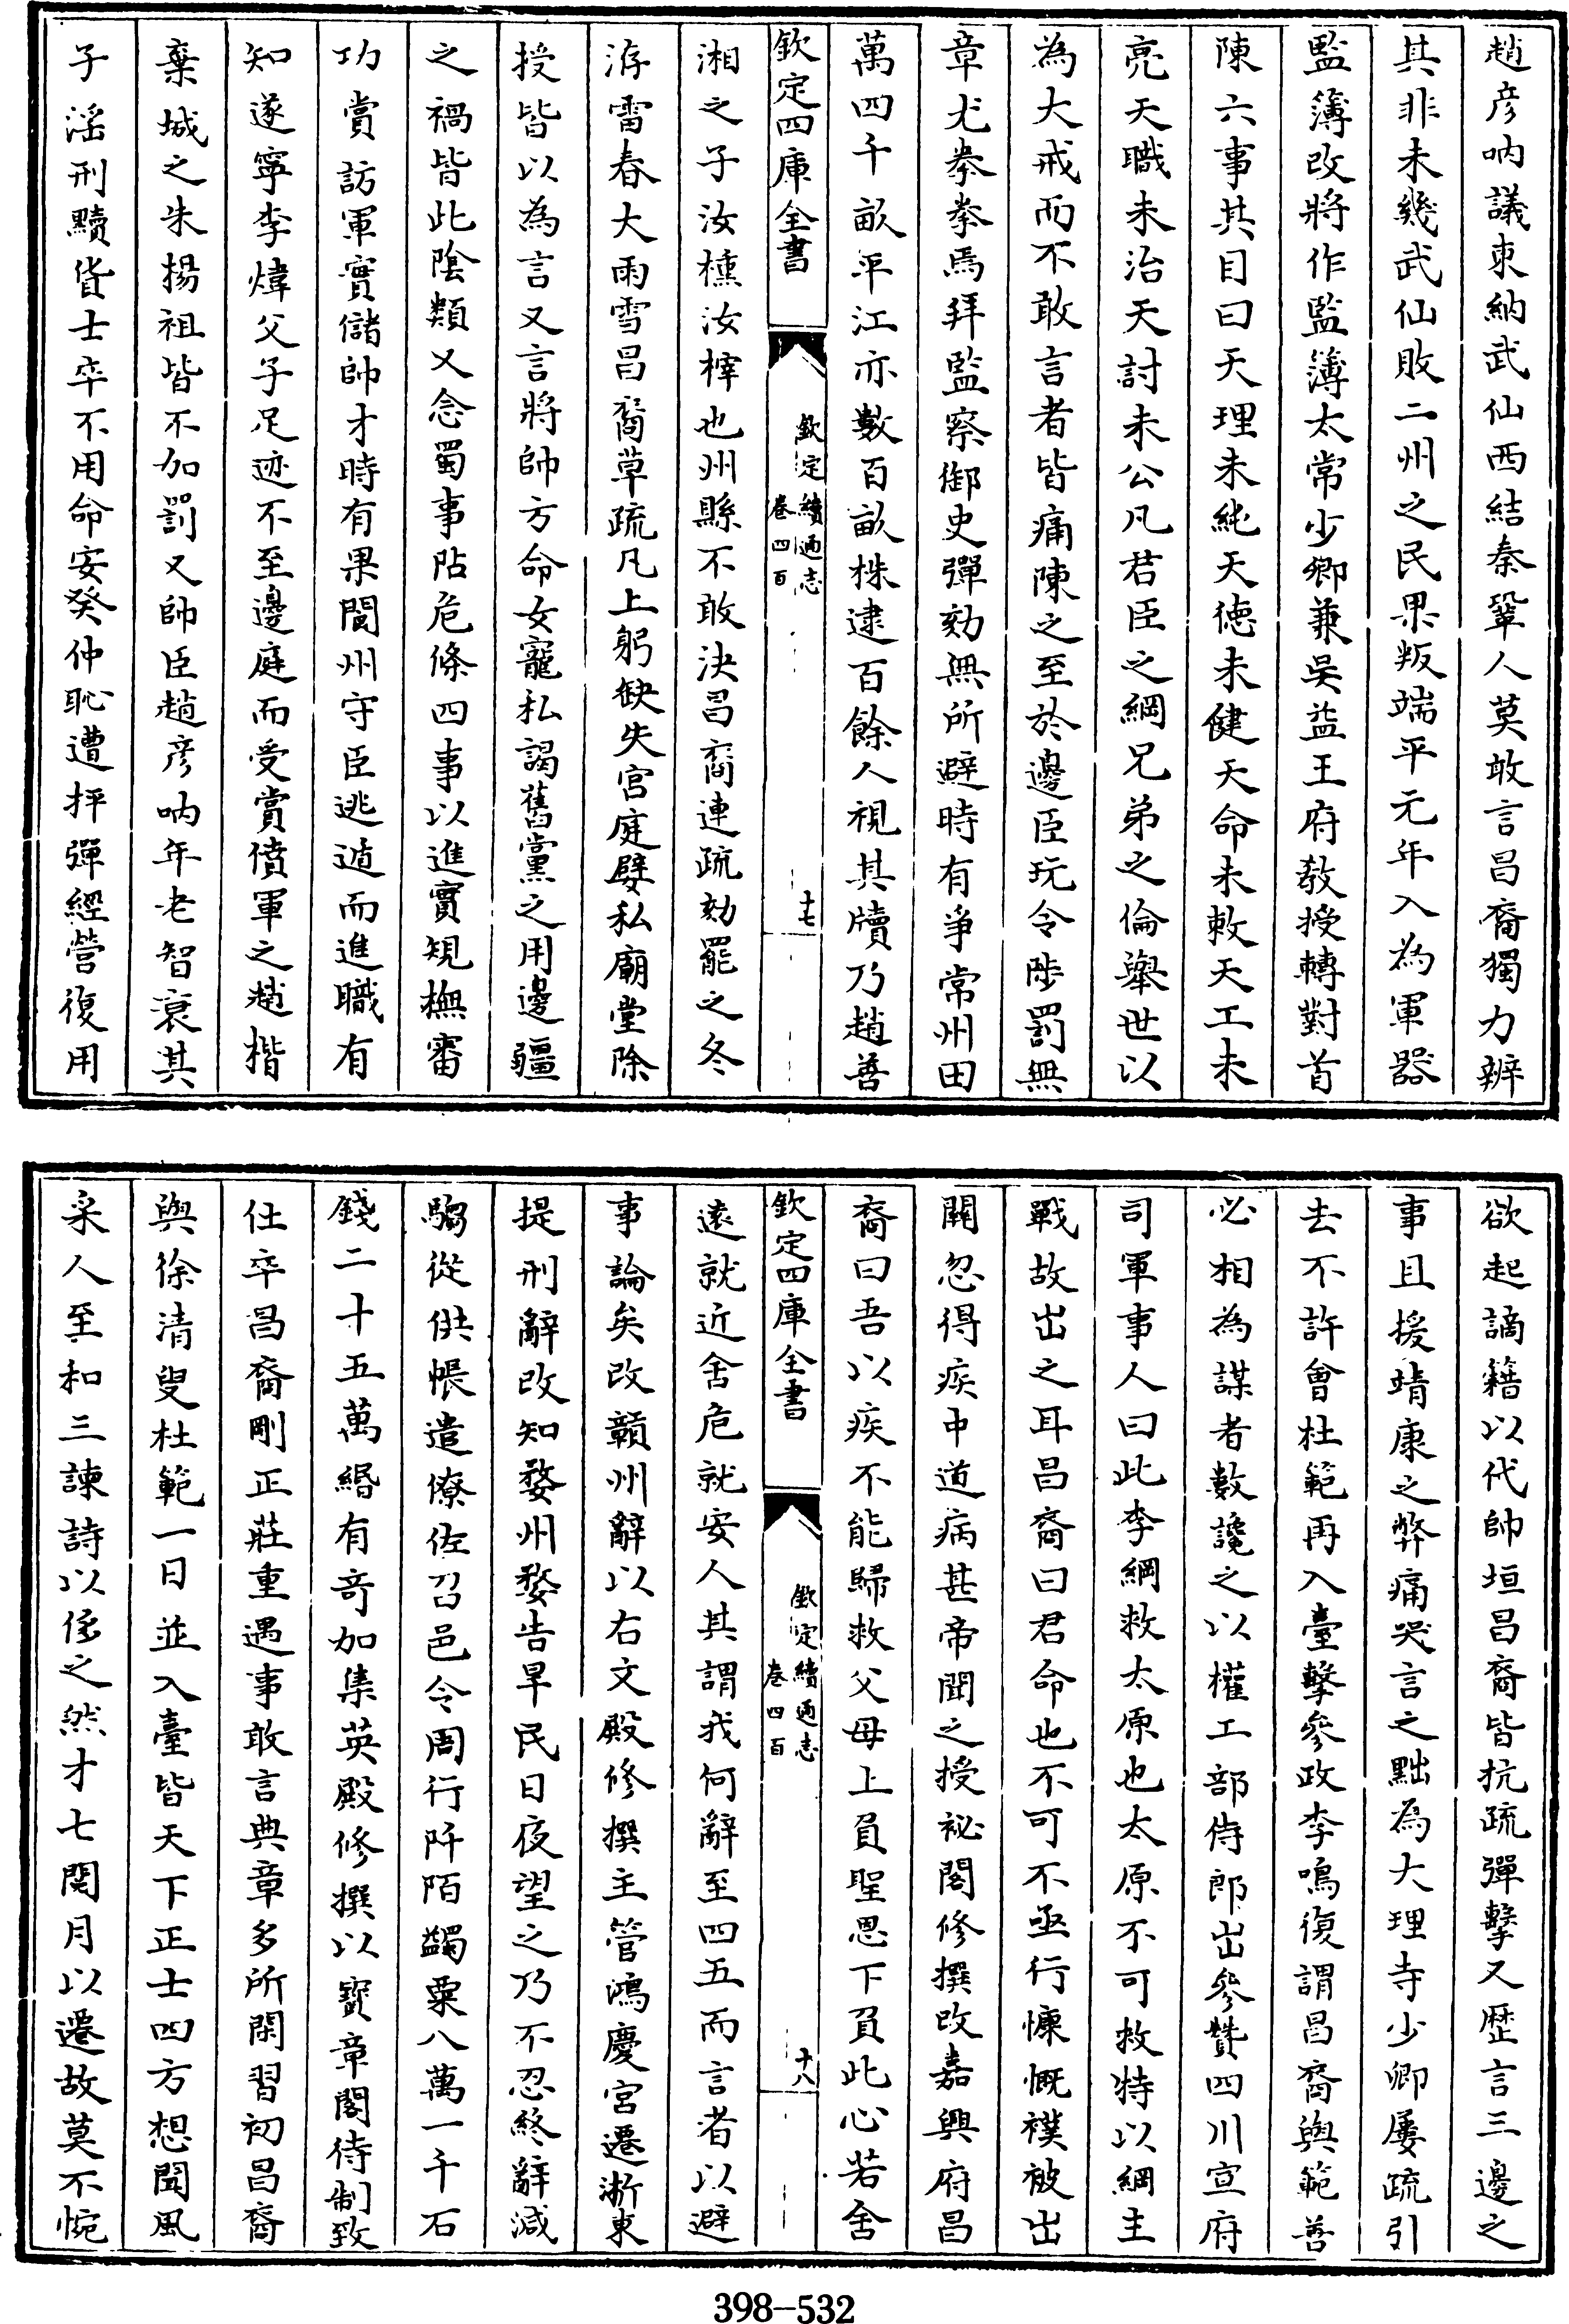 趙彦吶議東納武仙西結秦鞏人莫敢言昌裔獨力辨
其非未幾武仙敗二州之民果叛端平元年入為軍器
監簿改將作監簿太常少卿兼吳益王府教授轉對首
陳六事其目曰天理未純天德未健天命未敕天工未
亮天職未治天討未公凡君臣之綱兄弟之倫舉世以
為大戒而不敢言者皆痛陳之至於邊臣玩令陟罰無
章尤拳拳焉拜監察御史彈劾無所避時有爭常州田
萬四千畝平江亦數百畝株逮百餘人視其牘乃趙善
欽定四庫全書
欽定續通志
卷四百
十七
湘之子汝櫄汝梓也州縣不敢決昌裔連疏劾罷之冬
洊雷春大雨雪昌裔草疏凡上躬缺失宫庭嬖私廟堂除
授皆以為言又言將帥方命女寵私謁舊黨之用邊疆
之禍皆此陰類又念蜀事阽危條四事以進實規橅審
功賞訪軍實儲帥才時有果閬州守臣逃遁而進職有
知遂寧李煒父子足迹不至邊庭而受賞僨軍之趙楷
棄城之朱揚祖皆不加罰又帥臣趙彦吶年老智衰其
子淫刑黷貨士卒不用命安癸仲恥遭抨彈經營復用
欲起謫籍以代帥垣昌裔皆抗疏彈擊又歴言三邊之
事且援靖康之弊痛哭言之黜為大理寺少卿屢疏引
去不許會杜範再入臺擊參政李鳴復謂昌裔與範善
必相為謀者數讒之以權工部侍郎出參贊四川宣府
司軍事人曰此李綱救太原也太原不可救特以綱主
戰故出之耳昌裔曰君命也不可不亟行慷慨襆被出
關忽得疾中道病甚帝聞之授祕閣修撰改嘉興府昌
裔曰吾以疾不能歸救父母上負聖恩下負此心若舍
欽定四庫全書
欽定續通志
卷四百
十八
遠就近舍危就安人其謂我何辭至四五而言者以避
事論矣改贛州辭以右文殿修撰主管鴻慶宮遷浙東
提刑辭改知婺州婺告旱民日夜望之乃不忍終辭減
騶從供帳遣僚佐召邑令周行阡陌蠲粟八萬一千石
錢二十五萬緡有奇加集英殿修撰以寶章閣待制致
仕卒昌裔剛正莊重遇事敢言典章多所閑習初昌裔
與徐清叟杜範一日並入臺皆天下正士四方想聞風
采人至和三諫詩以侈之然才七閱月以遷故莫不惋
398—532